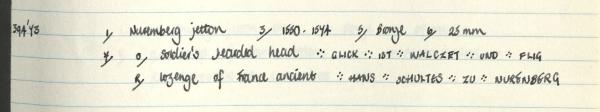 394'73 1, Nuremberg jetton 3, 1550-1574 5, Bronze 6, 25mm
7, O, Soldier's bearded head ⁘ GLICK ⁘ IST ⁘ WALCZET ⁘ UND ⁘ FLIG
R, lozenge of France ancient ⁘ HANS ⁘ SCHULTES ⁘ ZU ⁘ NURENBERG